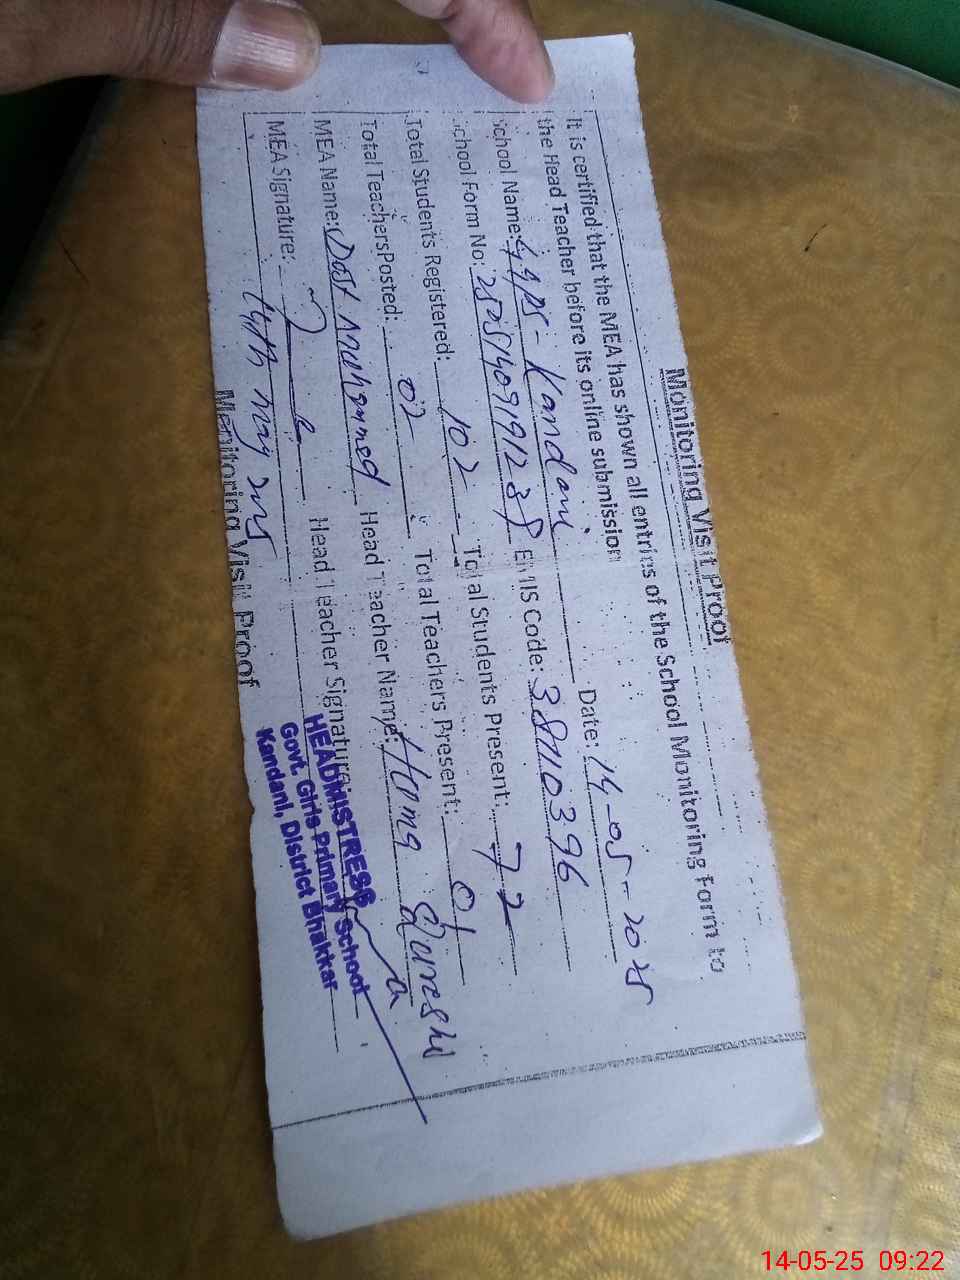 Monitoring Visit Proof
It is certified that the MEA has shown all entries of the School Monitoring Form to
the Head Teacher before its online submission
School Name: GGPS- Kandani Date: 14-05-2025
School Form No: EMIS Code: 38110396
Total Students Registered: 102 Total Students Present: 72
Total Teachers Posted: 02 Total Teachers Present: 01
MEA Name: Dost Muhammed Head Teacher Name: Huma Qureshi
MEA Signature: Head Teacher Signature:
HEADMISTRESS
Govt. Girls Primary School
Kandani, District Bhakkar
Monitoring Visit Proof
14-05-25 09:22